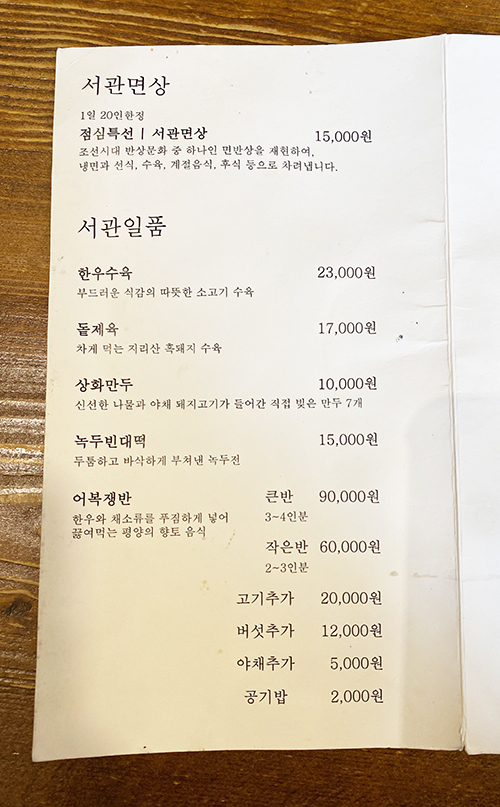 서관면상
1일 20인한정
점심특선 | 서관면상 15,000원
조선시대 반상문화 중 하나인 면반상을 재현하여,
냉면과 선식, 수육, 계절음식, 후식 등으로 차려냅니다.
서관일품
한우수육 23,000원
부드러운 식감의 따뜻한 소고기 수육
돝제육 17,000원
차게 먹는 지리산 흑돼지 수육
상화만두 10,000원
신선한 나물과 야채 돼지고기가 들어간 직접 빚은 만두 7개
녹두빈대떡 15,000원
두툼하고 바삭하게 부쳐낸 녹두전
어복쟁반 큰반 90,000원
한우와 채소류를 푸짐하게 넣어 3~4인분
끓여먹는 평양의 향토 음식
작은반 60,000원
2~3인분
고기추가 20,000원
버섯추가 12,000원
야채추가 5,000원
공기밥 2,000원